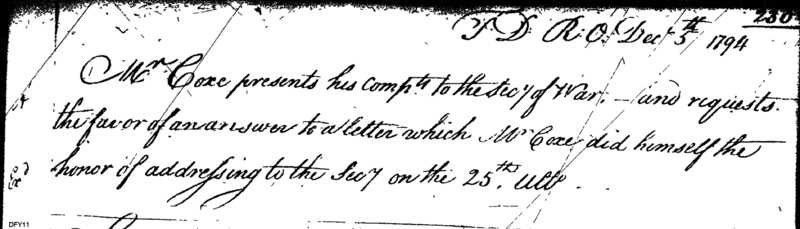 230
T. D. R. O. Decr. 5th 1794
Mr Coxe presents his Compts to the Secy of War. — and requests
the favor of an answer to a letter which Mr Coxe did himself the
honor of addressing to the Secy on the 25th. Ulto.
Exd
DFY11